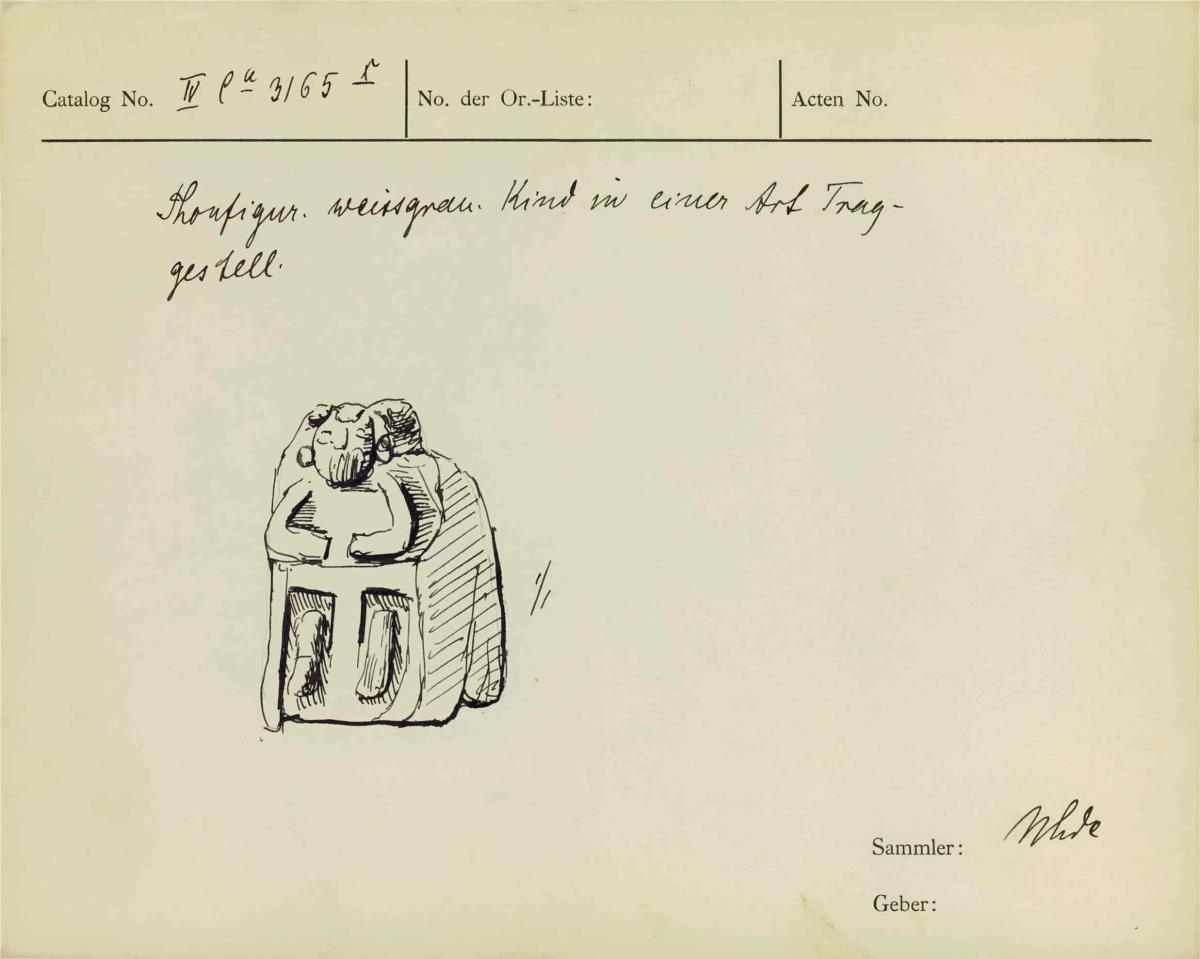 Catalog No. IV Ca 3165 r
No. der Or.-Liste:
Acten No.
Thonfigur. weissgrau. Kind in einer Art Trag-
gestell.
1/1
Sammler: Uhde
Geber: